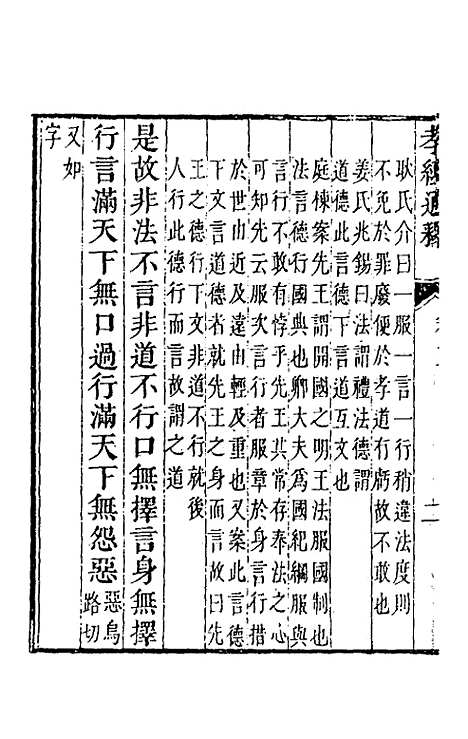 孝經通釋
二
耿氏介曰一服一言一行稍違法度則
不免於罪廢便於孝道有虧故不敢也
姜氏兆錫曰法謂禮法德謂
道德此言德下言道互文也
庭棟案先王謂開國之明王法服國制也
法言德行國典也卿大夫為國紀綱服與
言行不敢有悖乎先王其常存奉法之心
可知先云服次言行者服章於身言行措
於世由近及遠由輕及重也又案此言德
下文言道德者就先王之身而言故曰先
王之德行下文非道不行就後
人行此德行而言故謂之道
是故非法不言非道不行口無擇言身無擇
行言滿天下無口過行滿天下無怨惡惡烏
路切
又如
字